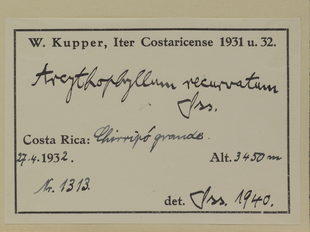 W. Kupper, Iter Costaricense 1931 u. 32.
Arcythophyllum recurvatum
Iss.
Costa Rica: Chirripó grande.
27.4.1932. Alt. 3450 m
Nr. 1313.
det. Iss. 1940.